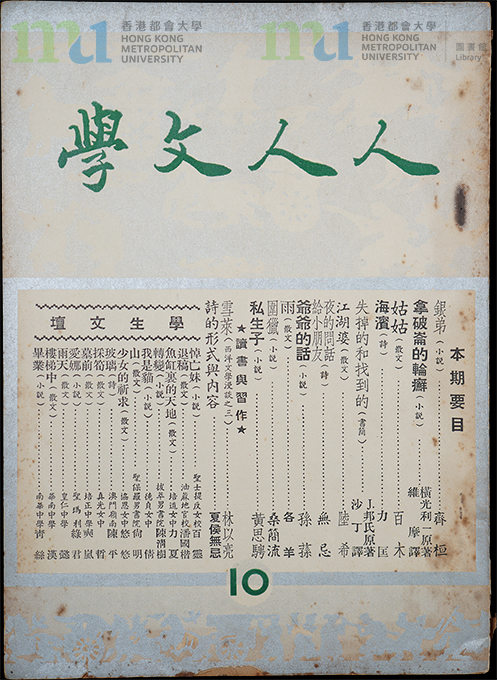 香港都會大學
HONG KONG
METROPOLITAN
UNIVERSITY
香港都會大學
HONG KONG
METROPOLITAN
UNIVERSITY
圖書館
Library
人人文學
本期要目
銀弟(小說) 齊桓
拿破崙的輪癬(小說) 橫光利一原著 維摩譯
姑姑(散文) 百木
海濱(詩) 力匡
失掉的和找到的(書簡) 上邦氏原著 沙丁譯
江湖婆(散文) 陸希
夜的問話(詩)
給小朋友 無忌
爺爺的話(小說) 孫蓀
雨(散文) 各羊
圍獵(小說) 桑簡流
私生子(小說) 黃思騁
★讀書與習作★
雪萊(西洋文學漫談之三) 林以亮
詩的形式與內容 夏侯無忌
學生文壇
悼亡妹(小說) 聖士提反女校百靈
退稿(散文) 油蔴地官校潘國楷
魚缸裏的天地(散文) 培道女中力夏
轉變(小說) 拔萃男書院陳渭樹
我是貓(小說) 德貞女中倩
山(散文) 聖保羅男書院尙明
少女的祈求(散文) 協恩女中悠悠
玻璃(詩) 澳門嶺南陳平
採笱(散文) 眞光女中哲
墓前(散文) 培正中學爽嵐
愛娜(小說) 聖瑪利綠君
雨天(散文) 皇仁中學
樓梯中(散文) 華南中學漢
畢業(小說) 南華中學青絲
10